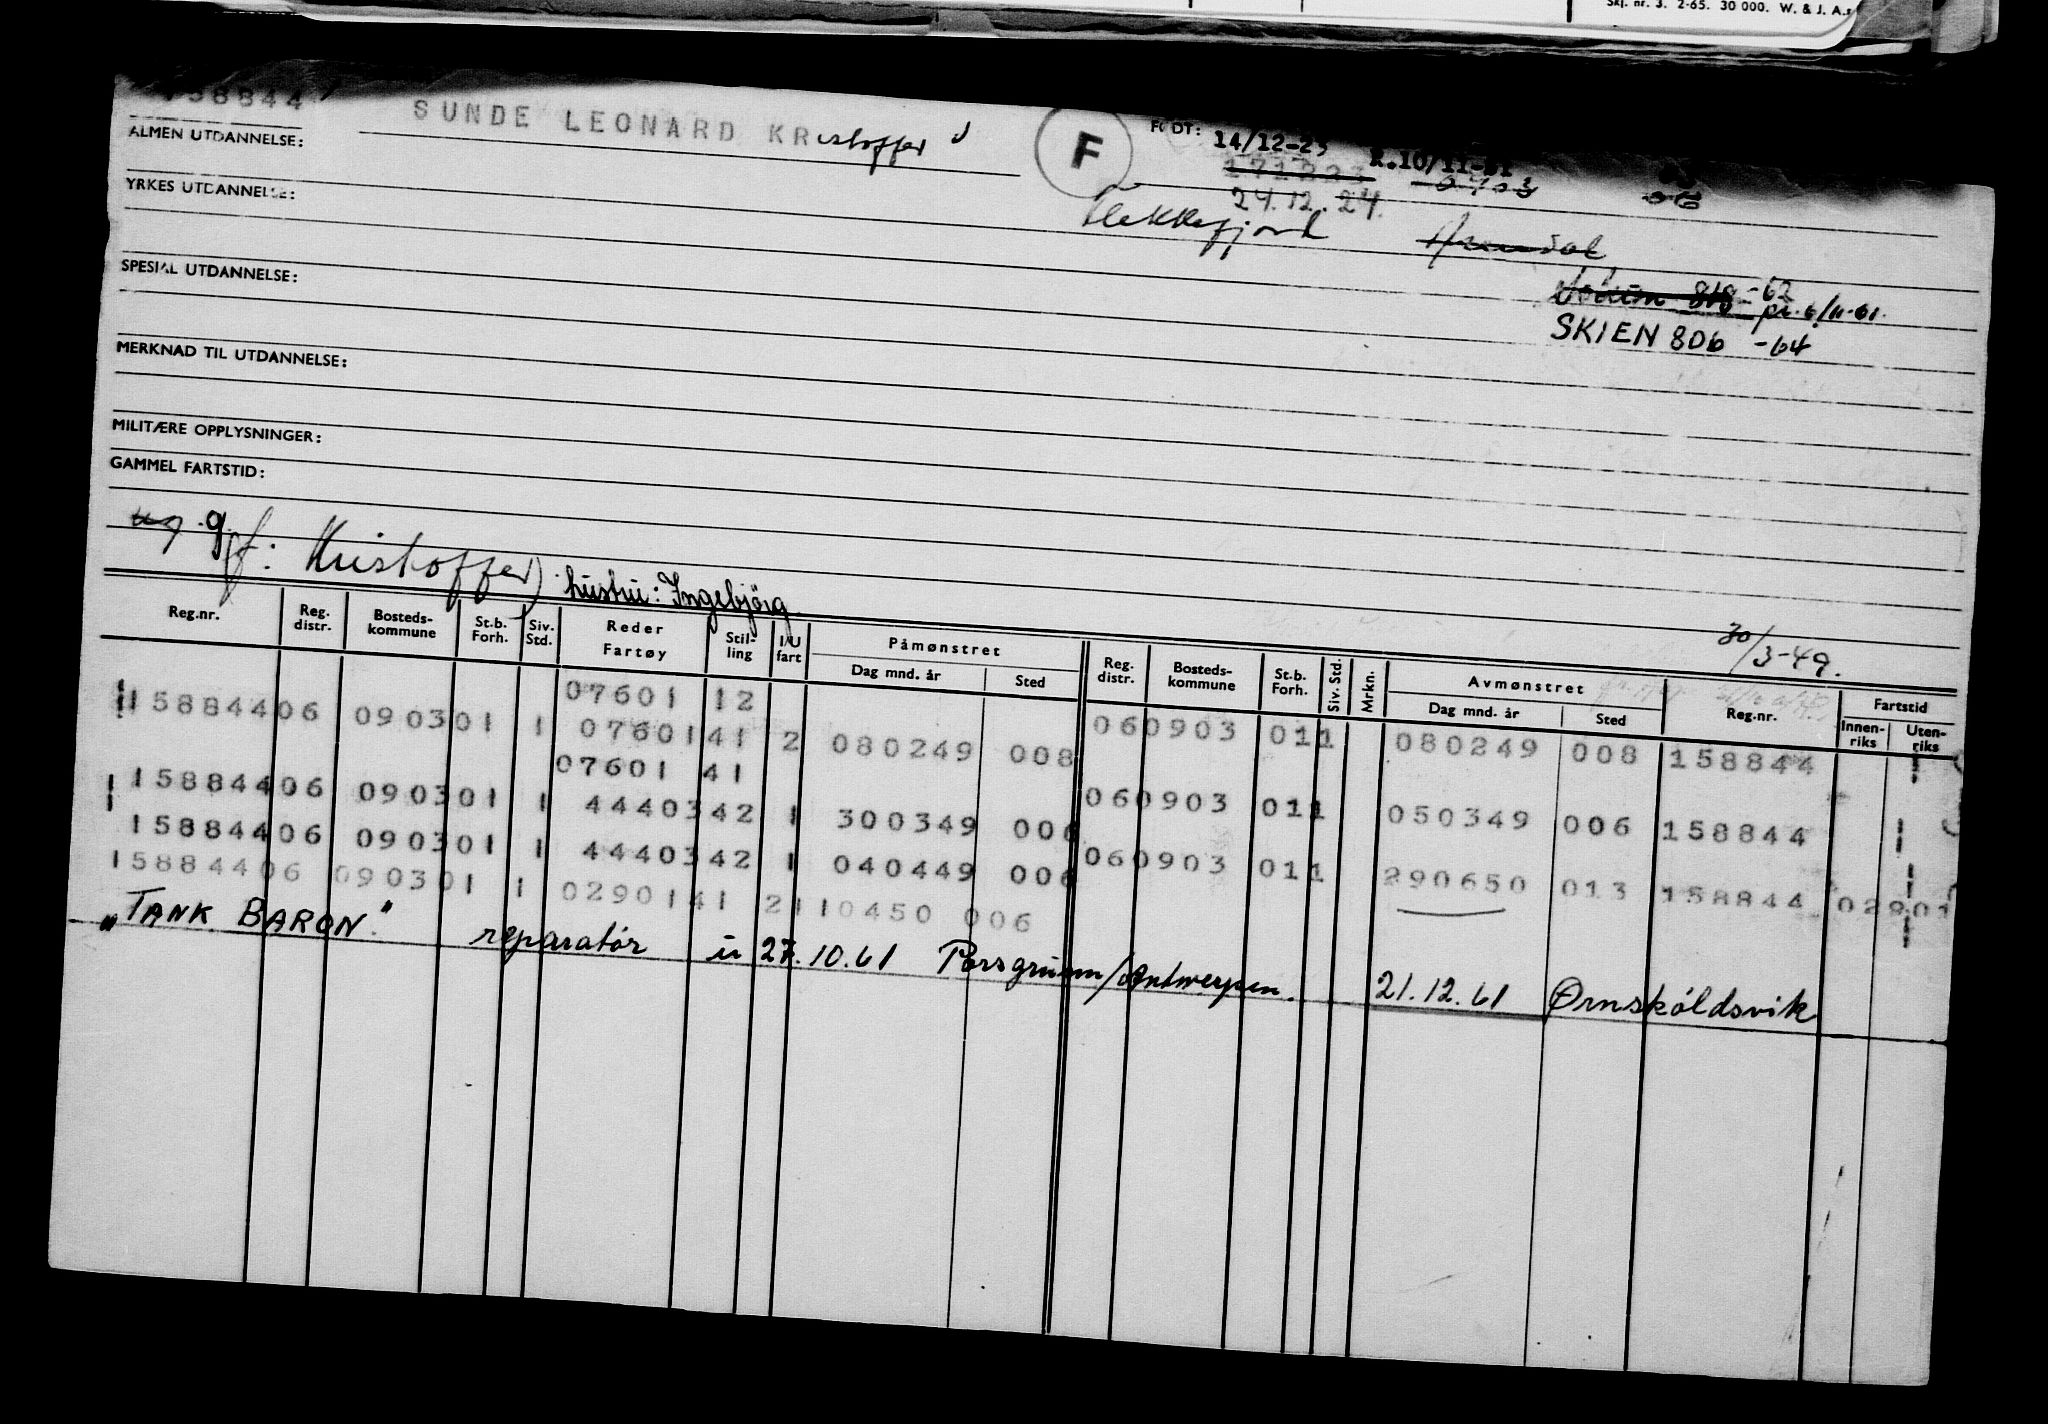 Skj. nr. 3. 2-65. 30 000. W. & J. A.s
158844
SUNDE LEONARD KRistoffer
F
FØDT: 14/12-23 R.10/11-51
171223 0903
24.12.24.
ALMEN UTDANNELSE:
YRKES UTDANNELSE:
Flekkefjord Arendal
SPESIAL UTDANNELSE:
-62
pr. 6/11-61.
SKIEN 806 -64
MERKNAD TIL UTDANNELSE:
MILITÆRE OPPLYSNINGER:
GAMMEL FARTSTID:
ug g. f: Kristoffer) hustru: Ingebjörg.
30/3-49.
Reg.nr. Reg. distr. Bosteds-kommune St.b. Forh. Siv. Std. Reder Fartøy Stil-ling I/U fart Påmønstret Dag mnd. år Sted Reg. distr. Bosteds-kommune St.b. Forh. Siv. Std. Mrkn. Avmønstret Dag mnd. år Sted Reg.nr. Fartstid Innen-riks Uten-riks
07601 12
158844 06 0903 01 1 07601 41 2 080249 008 06 0903 01 1 080249 008 158844
07601 41
158844 06 0903 01 1 44403 42 1 300349 006 06 0903 01 1 050349 006 158844
158844 06 0903 01 1 44403 42 1 040449 006 06 0903 01 1 290650 013 158844 02901
158844 06 0903 01 1 02901 41 2 110450 006
"TANK BARON" reparatör u 27.10.61 Porsgrunn/Antwerpen. 21.12.61 Ørnsköldsvik